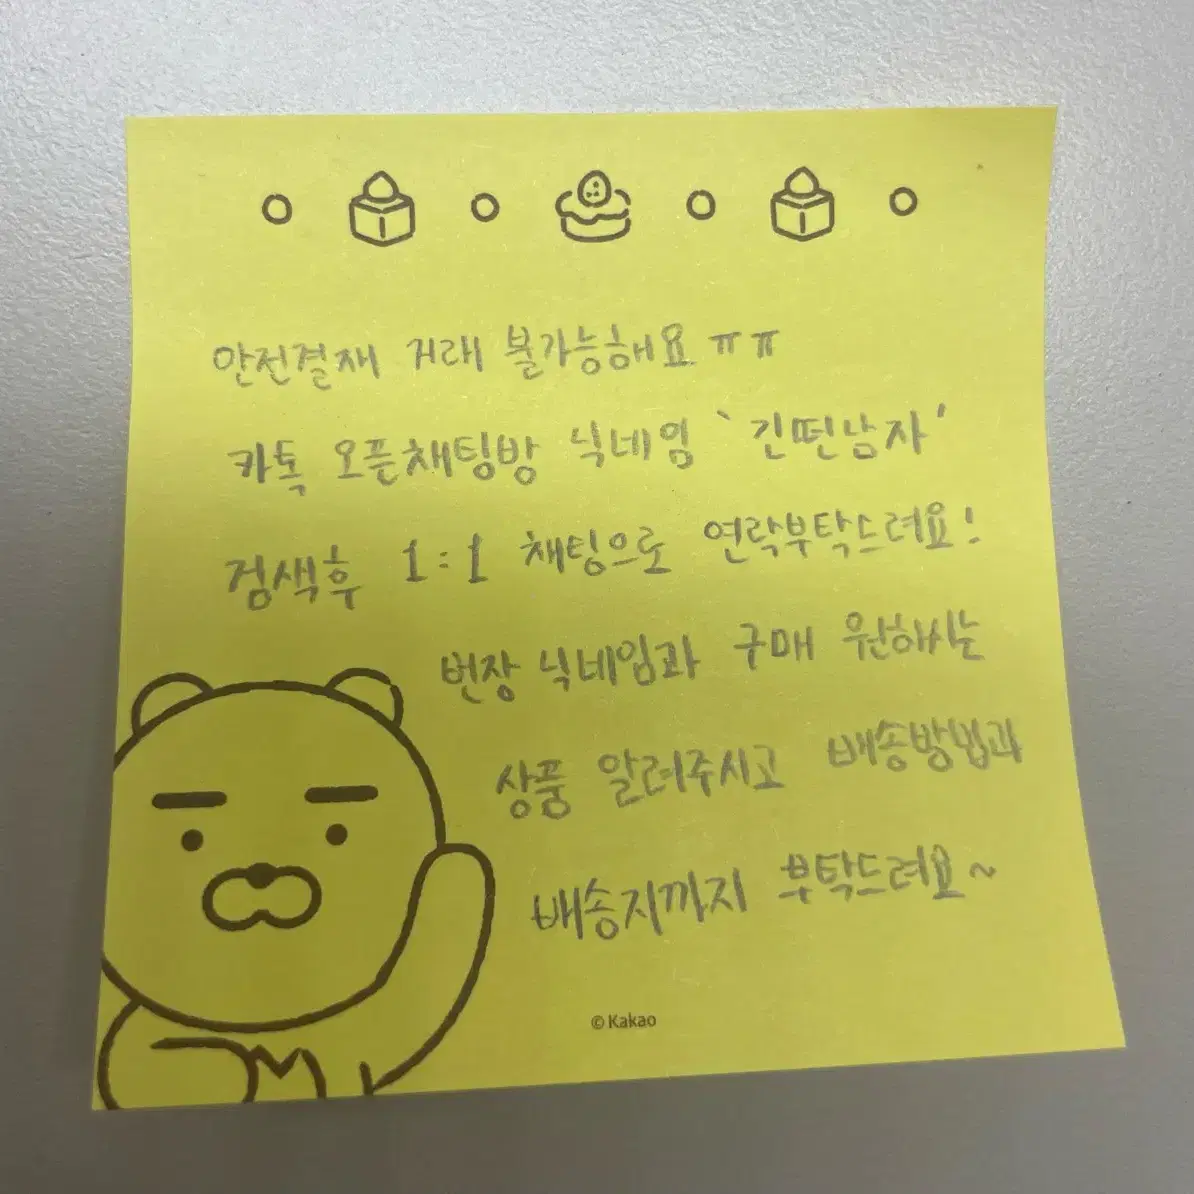 안전결재 거래 불가능해요 ㅠㅠ
카톡 오픈채팅방 닉네임 `긴떤남자'
검색후 1:1 채팅으로 연락부탁드려요!
번장 닉네임과 구매 원하시는
상품 알려주시고 배송방법과
배송지까지 부탁드려요~
© Kakao